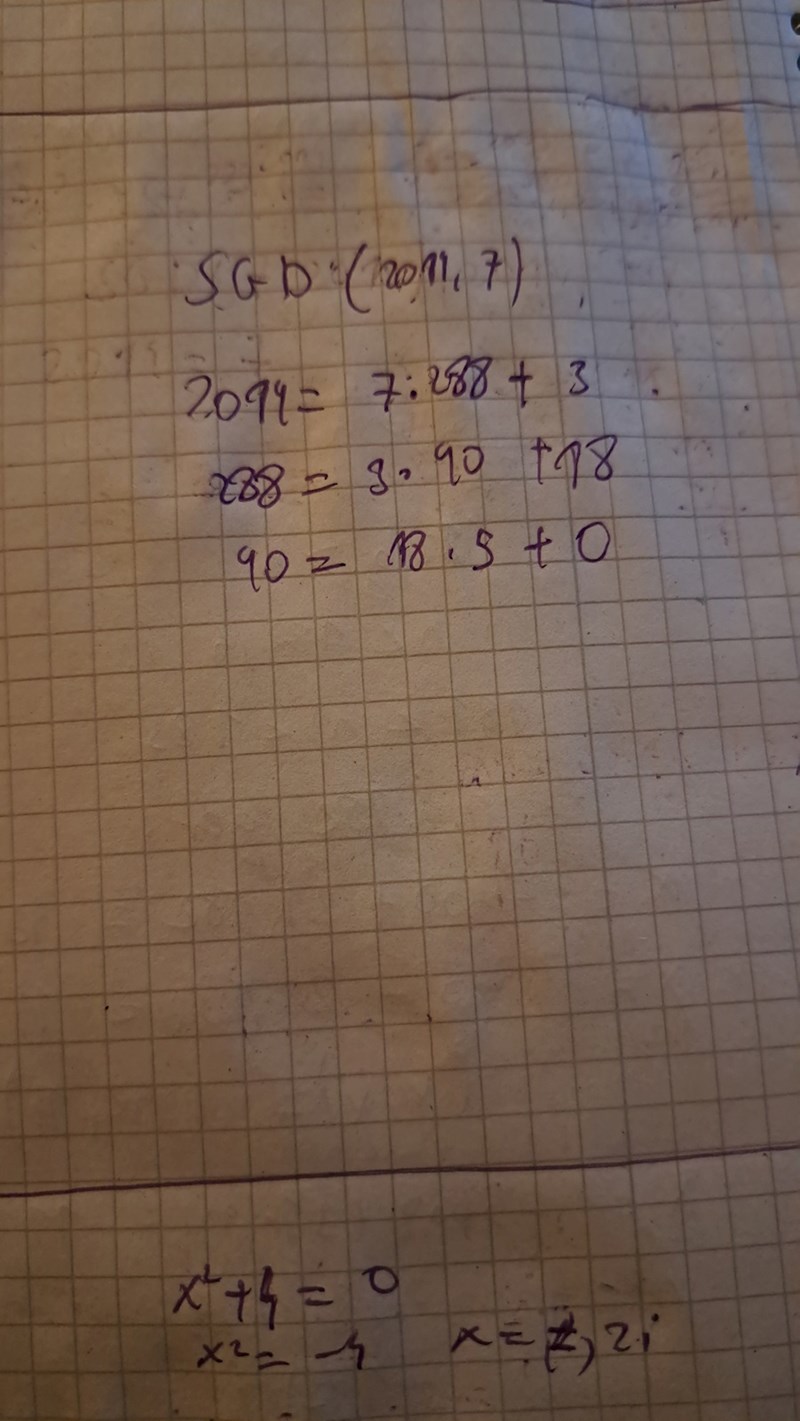 SGD (2011, 7)
2011 = 7.288 + 3
288 = 3.90 + 18
90 = 18.5 + 0
x²+4 = 0
x² = -4 x = 2i